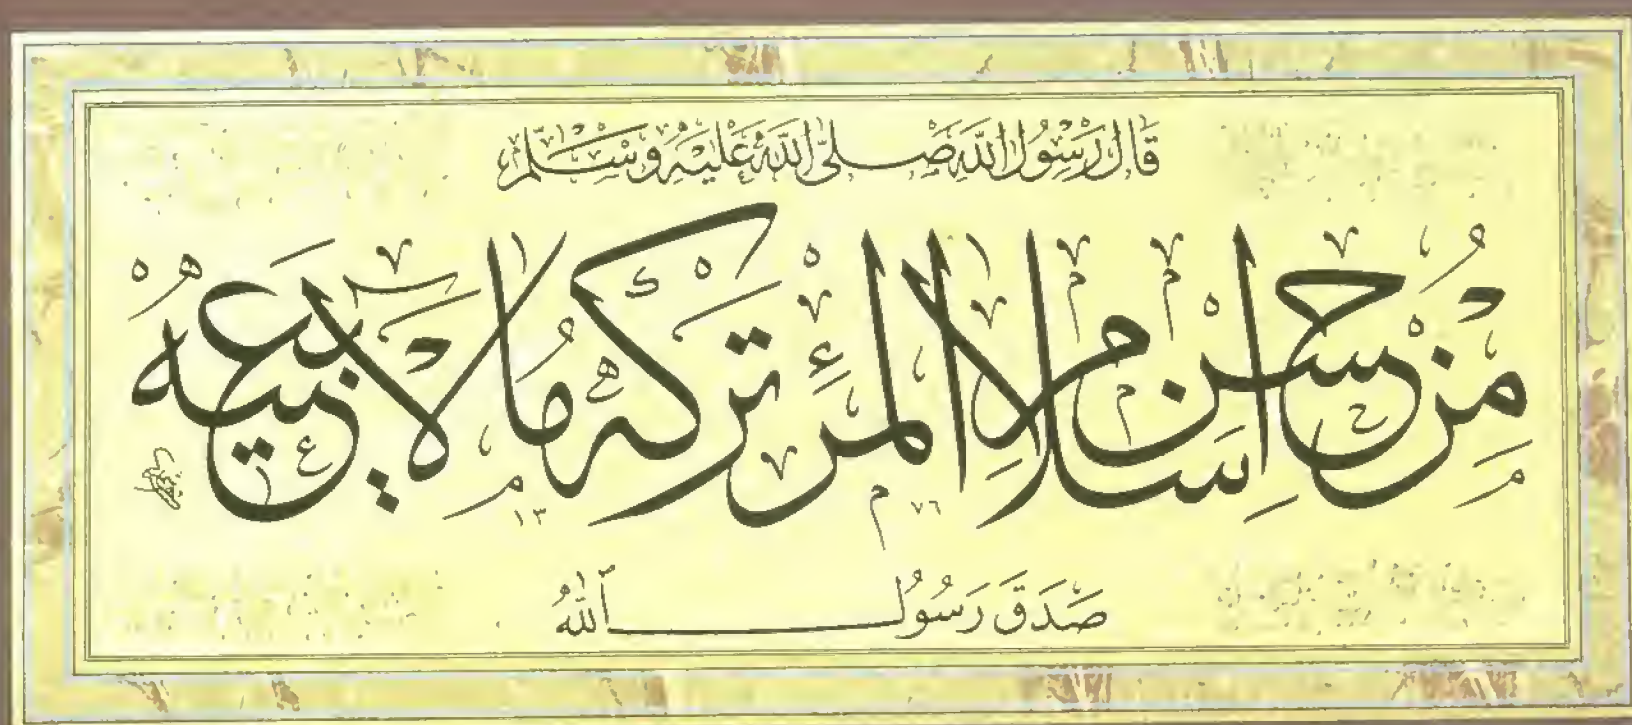 قَالَ رَسُولُ اللَّهِ صَلَّى اللَّهُ عَلَيْهِ وَسَلَّمَ
مِنْ حُسْنِ إِسْلَامِ الْمَرْءِ تَرْكُهُ مَا لَا يَعْنِيهِ
٧٦ ١٣
صَدَقَ رَسُولُ اللَّهِ